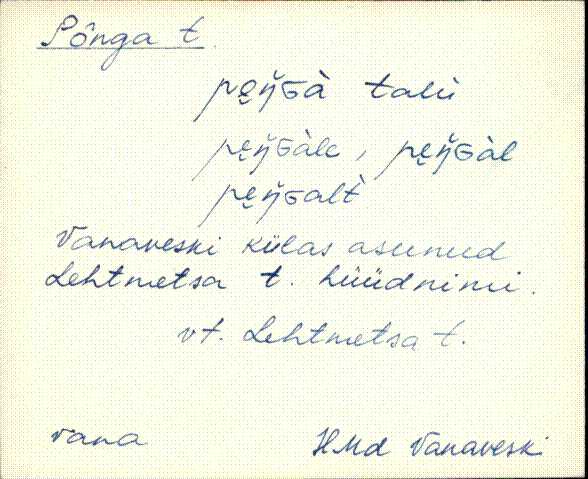 Põnga t.
pęŋ̆Gà talù
pęŋ̆Gàle, pęŋ̆Gàl
pęŋ̆Galt̀
Vanaveski külas asunud
Lehtmetsa t. hüüdnimi.
vt. Lehtmetsa t.
vana
HMd Vanaveski